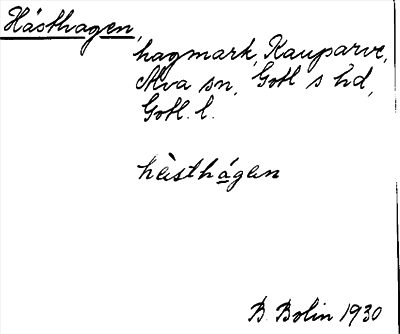 Hästhagen,
hagmark, Kauparve,
Alva sn, Gotl s hd,
Gotl. l.
hèisthágen
B. Bolin 1930